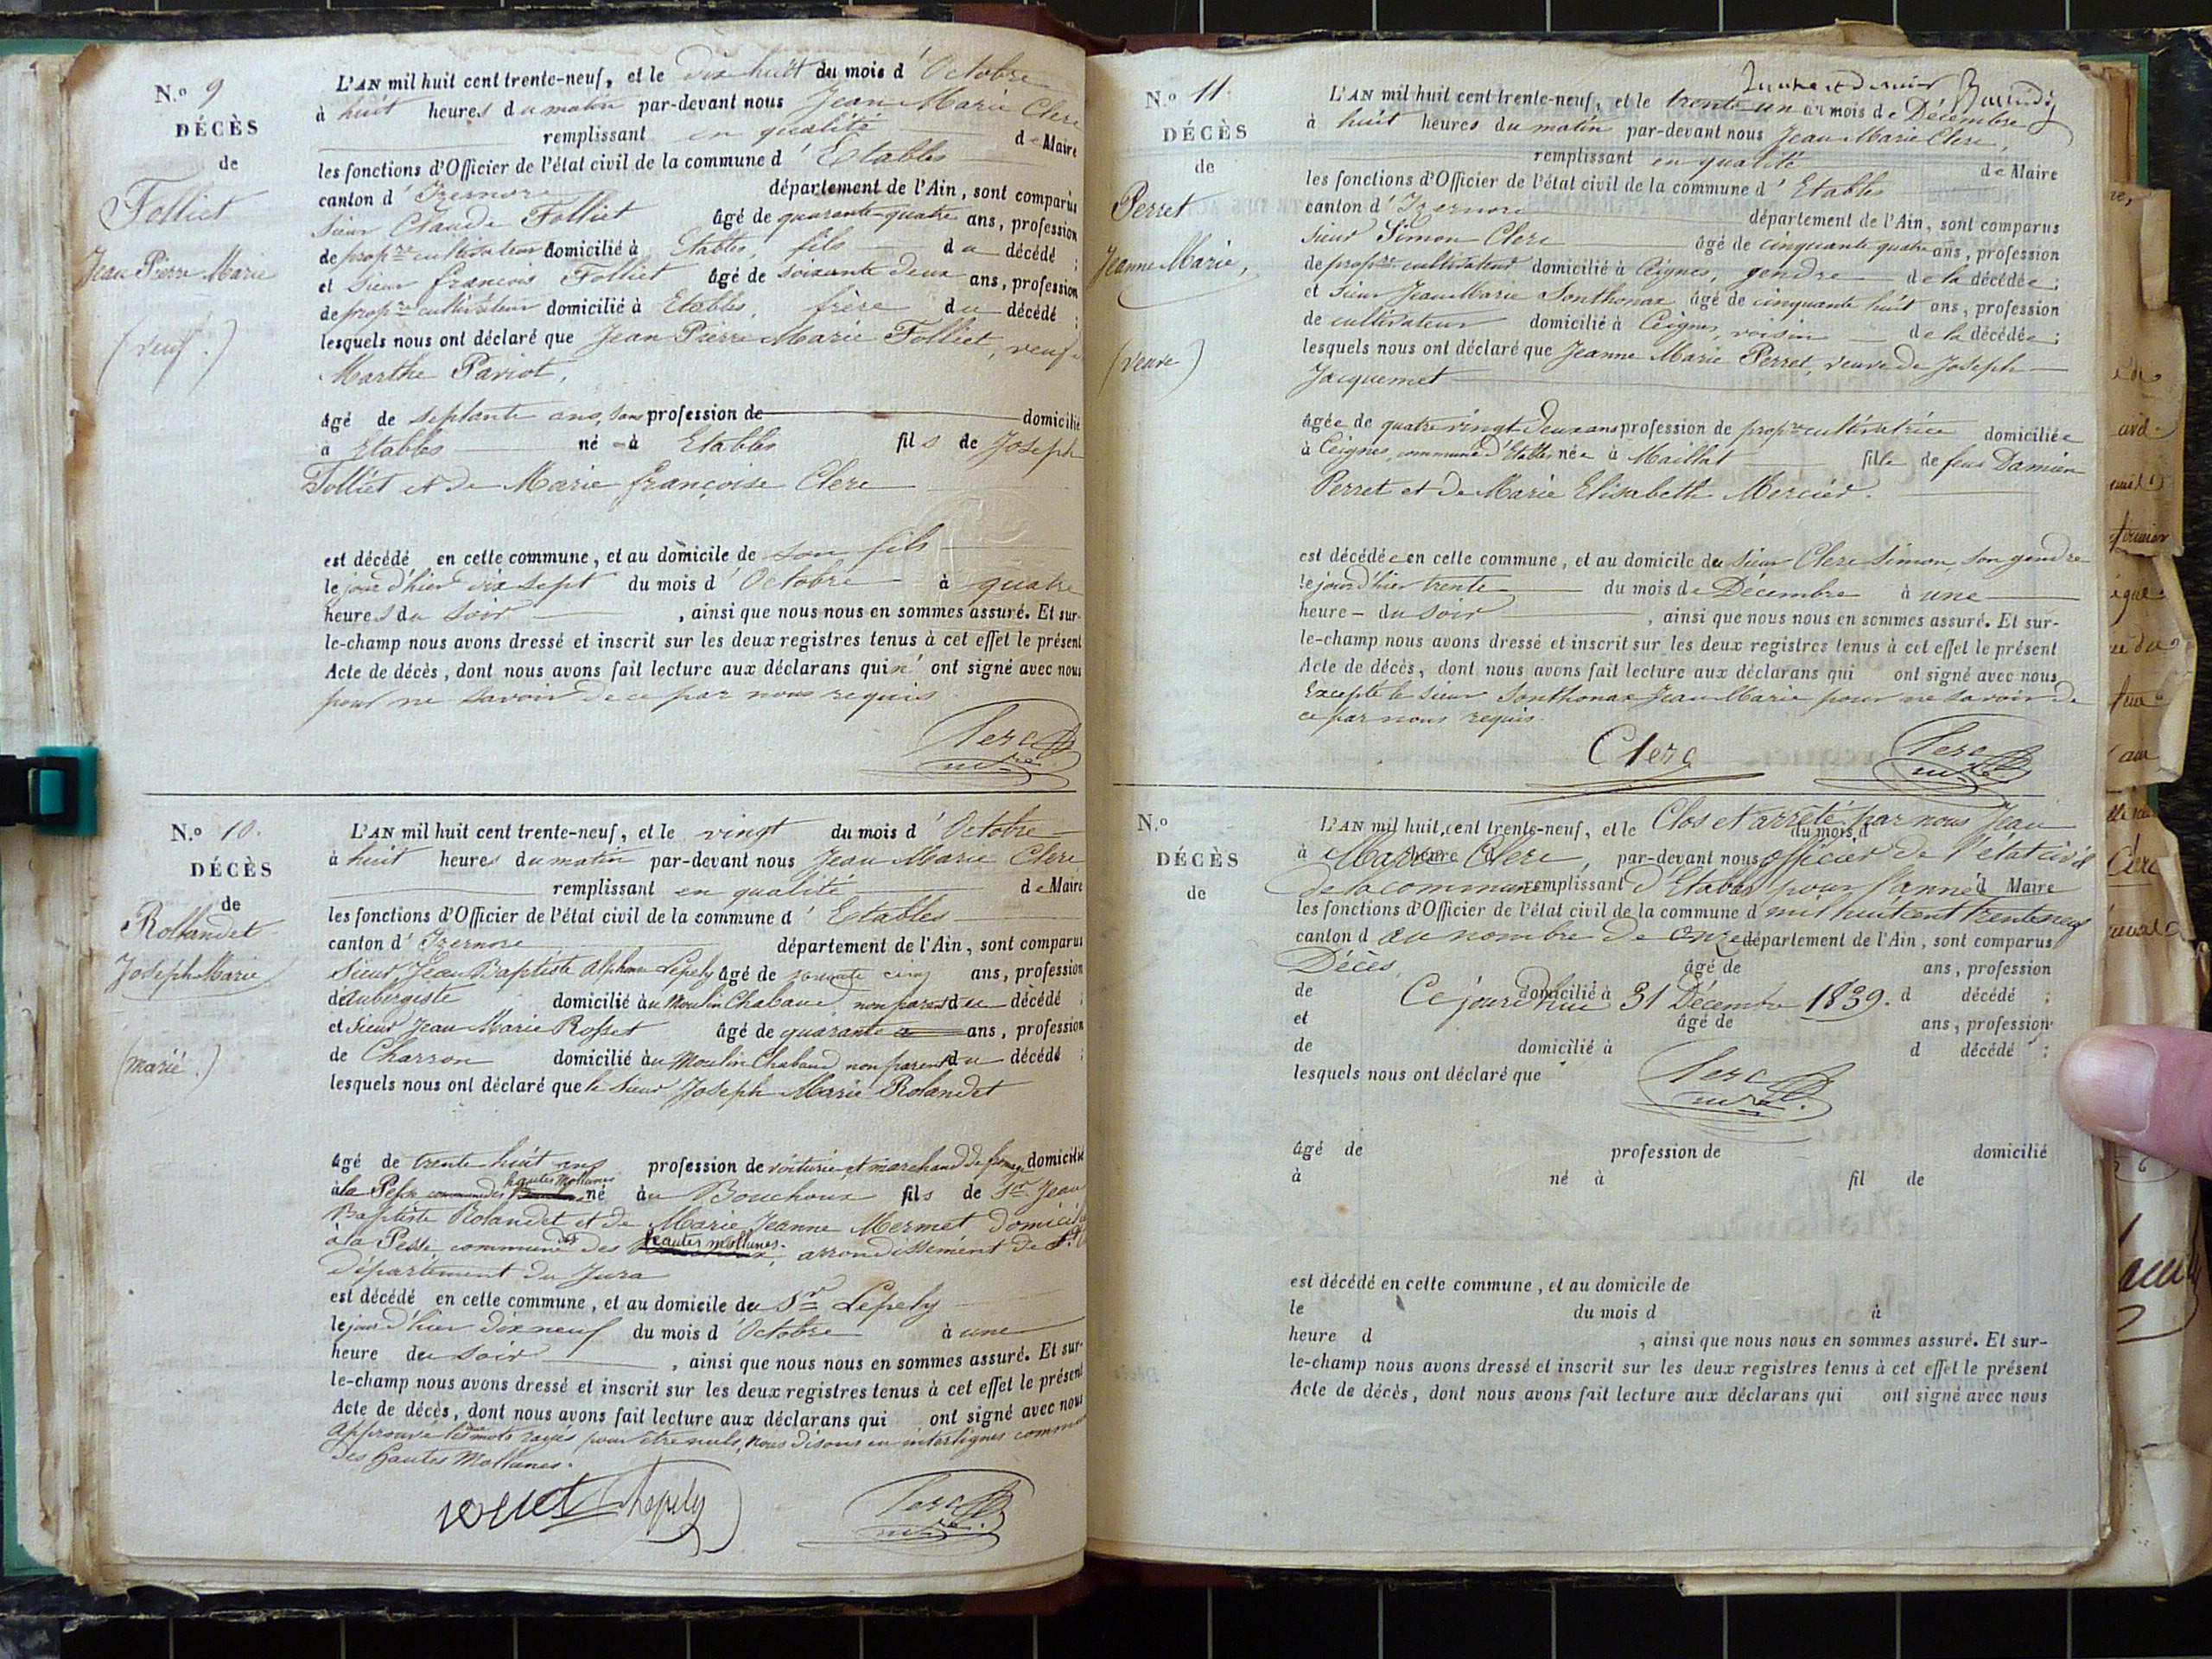 N.o 9
DÉCÈS
de
Folliet
Jean Pierre Marie
(veuf.)
L'AN mil huit cent trente-neuf, et le dix huit du mois d'Octobre
à huit heures du matin par-devant nous Jean Marie Clerc
remplissant en qualité de Maire
les fonctions d'Officier de l'état civil de la commune d'Etables
canton d'Izernore département de l'Ain, sont comparus
Sieur Claude Folliet âgé de quarante-quatre ans, profession
de propre cultivateur domicilié à Etables, fils du décédé ;
et Sieur françois Folliet âgé de soixante deux ans, profession
de propre cultivateur domicilié à Etables, frère du décédé ;
lesquels nous ont déclaré que Jean Pierre Marie Folliet, veuf
Marthe Pariot,
âgé de septante ans, sans profession de domicilié
à Etables né à Etables fils de Joseph
Folliet et de Marie françoise Clerc
est décédé en cette commune, et au domicile de son fils
le jour d'hier dix sept du mois d'Octobre à quatre
heures du soir, ainsi que nous nous en sommes assuré. Et sur-
le-champ nous avons dressé et inscrit sur les deux registres tenus à cet effet le présent
Acte de décès, dont nous avons fait lecture aux déclarans qui n'ont signé avec nous
pour ne savoir de ce par nous requis
Clerc
N.o 10.
DÉCÈS
de
Rollandet
Joseph Marie
(marié.)
L'AN mil huit cent trente-neuf, et le vingt du mois d'Octobre
à huit heures du matin par-devant nous Jean Marie Clerc
remplissant en qualité de Maire
les fonctions d'Officier de l'état civil de la commune d'Etables
canton d'Izernore département de l'Ain, sont comparus
Sieur Jean Baptiste Alphonse Lépely âgé de cinq ans, profession
d'aubergiste domicilié au Moulin Chabaud non parent du décédé ;
et Sieur Jean Marie Rosset âgé de quarante ans, profession
de Charron domicilié au Moulin Chabaud non parent du décédé ;
lesquels nous ont déclaré que le Sieur Joseph Marie Rolandet
âgé de trente huit ans profession de voiturier et marchand de domicilié
hautes Mollunes
à la Pesse commune des né au Bouchoux fils de Sr. Jean
Baptiste Rolandet et de Marie Jeanne Mermet domicilié
à la Pesse commune des hautes mollunes, arrondissement de St
Département du Jura
est décédé en cette commune, et au domicile du Sr Lépely
le jour d'hier dix neuf du mois d'Octobre à une
heure du soir, ainsi que nous nous en sommes assuré. Et sur-
le-champ nous avons dressé et inscrit sur les deux registres tenus à cet effet le présent
Acte de décès, dont nous avons fait lecture aux déclarans qui ont signé avec nous
Approuvé les mots rayés pour être nuls, nous disons en interlignes commune
des hautes Mollunes.
Rosset Lépely Clerc
N.o 11.
DÉCÈS
de
Perret
Jeanne Marie,
(veuve)
L'AN mil huit cent trente-neuf, et le trente un du mois de Décembre
à huit heures du matin par-devant nous Jean Marie Clerc,
remplissant en qualité de Maire
les fonctions d'Officier de l'état civil de la commune d'Etables
canton d'Izernore département de l'Ain, sont comparus
Sieur Simon Clerc âgé de cinquante quatre ans, profession
de propre cultivateur domicilié à Ceignes, gendre de la décédée ;
et Sieur Jean Marie Sonthonax âgé de cinquante huit ans, profession
de cultivateur domicilié à Ceignes, voisin de la décédée ;
lesquels nous ont déclaré que Jeanne Marie Perret, veuve de Joseph
Jacquemet
âgée de quatre vingt deux ans profession de propre cultivatrice domiciliée
à Ceignes, commune d'Etables née à Maillat fille de feus Damien
Perret et de Marie Elisabeth Mercier.
est décédée en cette commune, et au domicile du sieur Clerc Simon, son gendre
le jour d'hier trente du mois de Décembre à une
heure du soir, ainsi que nous nous en sommes assuré. Et sur-
le-champ nous avons dressé et inscrit sur les deux registres tenus à cet effet le présent
Acte de décès, dont nous avons fait lecture aux déclarans qui ont signé avec nous
Excepté le sieur Sonthonax Jean Marie pour ne savoir de
ce par nous requis.
Clerc Clerc
N.o
DÉCÈS
de
L'AN mil huit cent trente-neuf, et le Clos et arrêté par nous Jean
du mois d
à Marie Clerc, heure par-devant nous officier de l'état civil
de la commune remplissant d'Etables pour l'année d Maire
les fonctions d'Officier de l'état civil de la commune d mil huit cent trente neuf
canton d au nombre de onze département de l'Ain, sont comparus
Décès, âgé de ans, profession
de Ce jourd'hui domicilié à 31 Décembre 1839. d décédé ;
et âgé de ans, profession
de domicilié à d décédé ;
lesquels nous ont déclaré que
Clerc
âgé de profession de domicilié
à né à fil de
est décédé en cette commune, et au domicile de
le du mois d à
heure d , ainsi que nous nous en sommes assuré. Et sur-
le-champ nous avons dressé et inscrit sur les deux registres tenus à cet effet le présent
Acte de décès, dont nous avons fait lecture aux déclarans qui ont signé avec nous